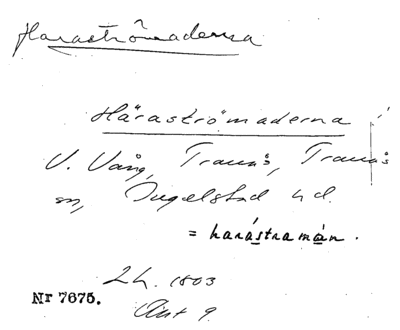 Haraströmaderna
Häraströmaderna
V. Vång, Tranås, Tranås
sn, Ingelstad hd.
= harástramán.
LH. 1803
Akt 9
Nr 7675.